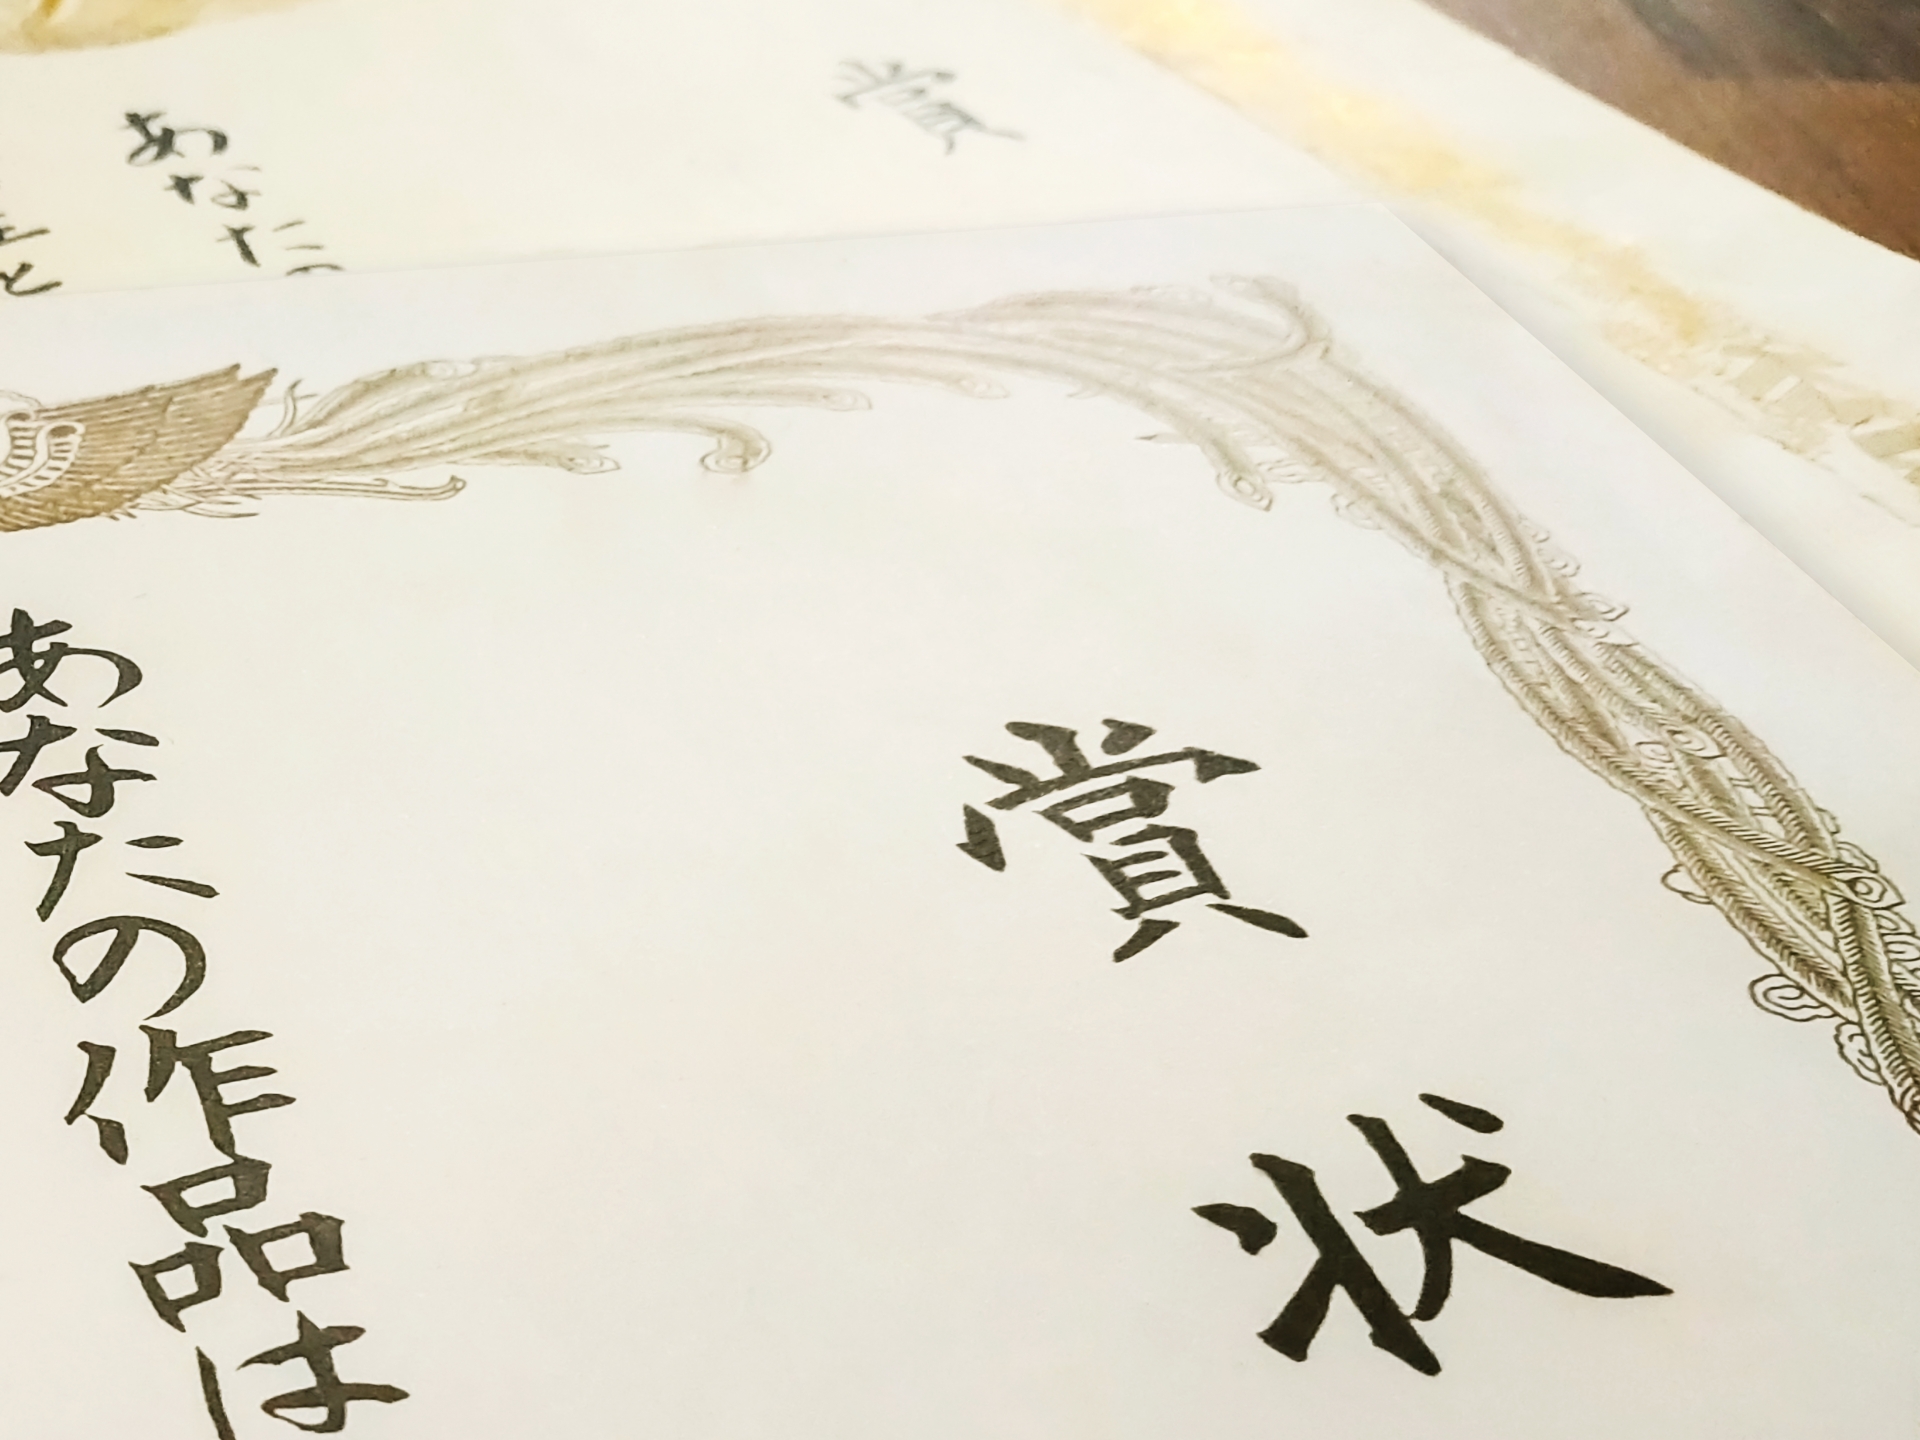 賞状
あなたの作品は
賞
あなた
と